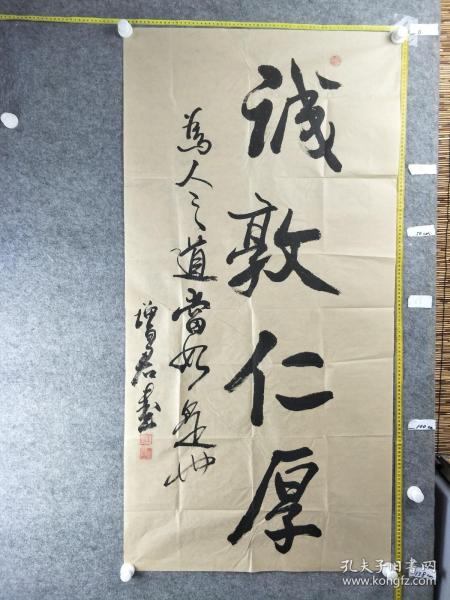 誠敦仁厚
為人之道當如是也
增君書
孔夫子旧书网
www.kongfz.com